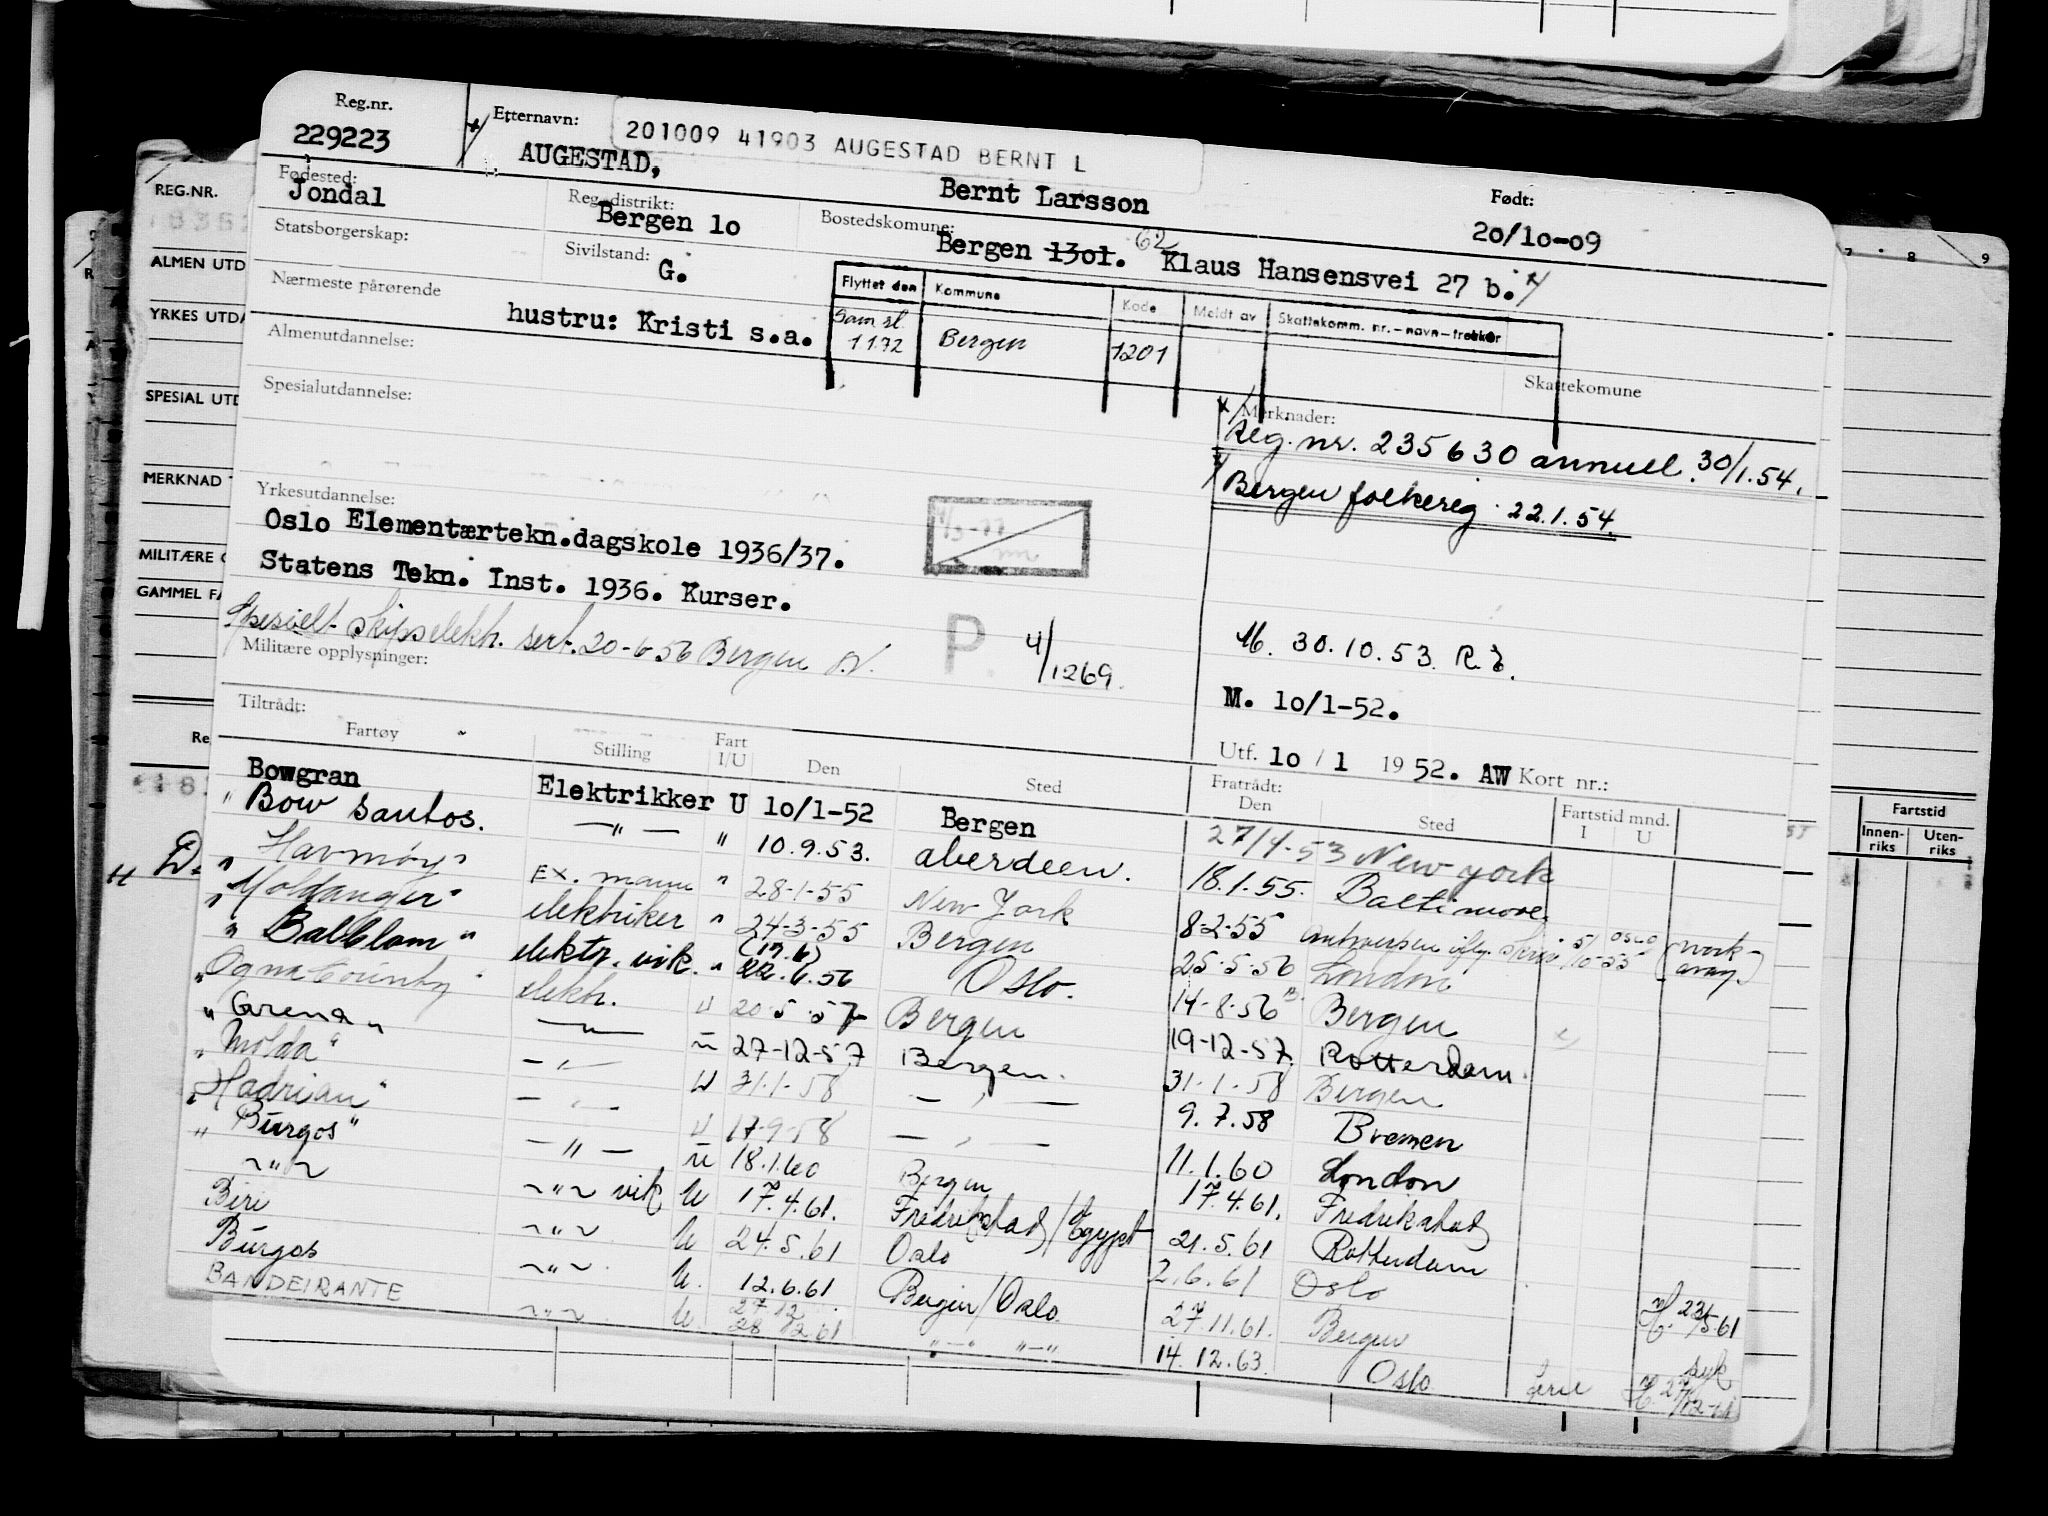 Reg.nr.
229223
Etternavn:
201009 41903 AUGESTAD BERNT L
AUGESTAD,
Bernt Larsson
Født:
20/10-09
Fødested:
Jondal
Reg.distrikt:
Bergen lo
Bostedskomune:
Bergen 1301. 62 Klaus Hansensvei 27 b.
Statsborgerskap:
Sivilstand:
G.
Nærmeste pårørende
hustru: Kristi s.a.
Flyttet den Kommune Kode Meldt av Skattekomm. nr.-navn-trekker
Sam sl.
1172 Bergen 1201
Almenutdannelse:
Skattekomune
Spesialutdannelse:
Merknader:
Reg. nr. 235630 annull. 30/1.54.
Bergen folkereg. 22.1.54.
Yrkesutdannelse:
Oslo Elementærtekn.dagskole 1936/37.
Statens Tekn. Inst. 1936. Kurser.
Spesielt skipselektr. sert. 20-6-56 Bergen
P 4/1269.
M. 30.10.53.
M. 10/1-52.
Militære opplysninger:
Utf. 10 / 1 1952. AW Kort nr.:
Tiltrådt:
Fratrådt:
Fartøy Stilling Fart I/U Den Sted Den Sted Fartstid mnd. I U
Bowgran Elektrikker U 10/1-52 Bergen 27/4-53 New York
" Bow Santos. —"— " 10.9.53. Aberdeen. 18.1.55. Baltimore.
" Havmøy" Ex. mann " 28-1-55 New York 8-2-55 Antwerpen
" Moldanger" elektriker " 24-3-55 Bergen 25-5-56 London
" Balblom " elektr. vik. " (17.6) 22.6.56 Oslo. 14-8-56 Bergen
" Ogna elektr. U 20.5.57 Bergen 19-12-57. Rotterdam.
" Grena " —"— U 27-12-57 Bergen. 31-1-58 Bergen
" Molda" —"— U 31.1.58 —"— 9.7.58 Bremen
" Hadrian" —"— U 17-9-58 —"— 11.1.60 London
" Burgos" —"— U 18.1.60 Bergen 17.4.61. Fredrikstad
~"~ ~"~ vik U 17.4.61. Fredrikstad/Egypt 21.5.61 Rotterdam
Biri ~"~ U 24.5.61 Oslo 2.6.61 Oslo
Burgos ~"~ U. 12.6.61 Bergen/Oslo. 27.11.61. Bergen
BANDEIRANTE ~"~ U. 28/12 61 "—" "—" 14.12.63. Oslo
REG.NR.
ALMEN UTD
YRKES UTDA
SPESIAL UTD
MERKNAD
MILITÆRE
GAMMEL FA
Fartstid
Innen-
riks
Uten-
riks